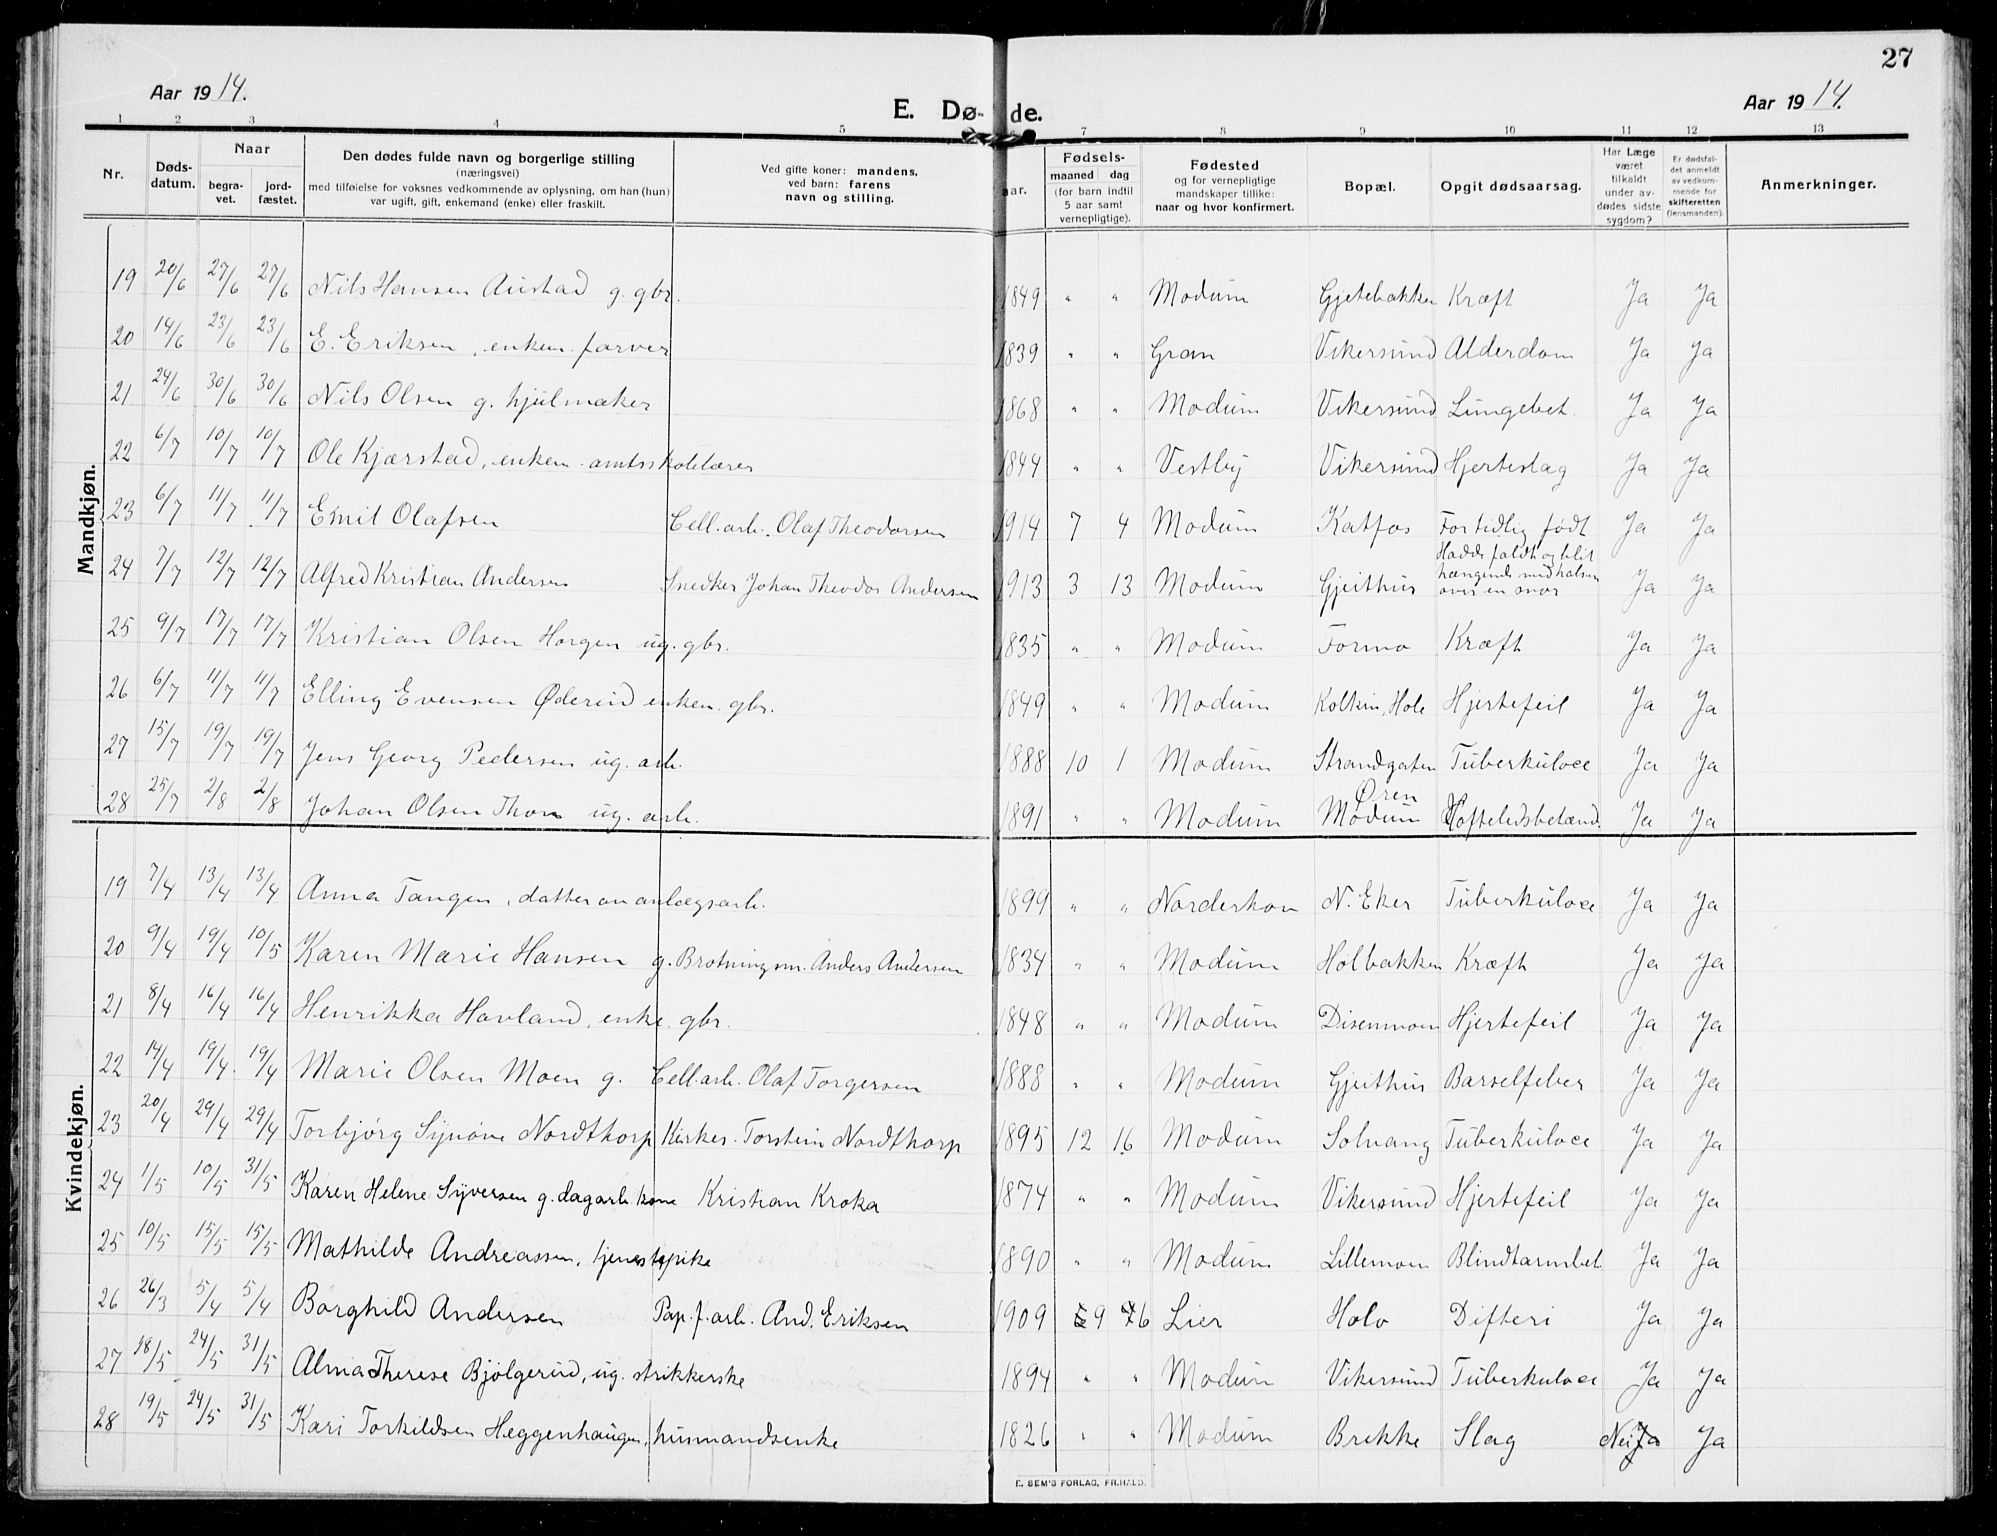 27
Aar 1914.
E. Dø- de.
Aar 1914.
1 2 3 4 5 6 7 8 9 10 11 12 13
Nr.
Døds-
datum.
Naar
begra-
vet.
jord-
fæstet.
Den dødes fulde navn og borgerlige stilling
(næringsvei)
med tilføielse for voksnes vedkommende av oplysning, om han (hun)
var ugift, gift, enkemand (enke) eller fraskilt.
Ved gifte koner: mandens,
ved barn: farens
navn og stilling.
aar.
Fødsels-
maaned dag
(for barn indtil
5 aar samt
vernepligtige).
Fødested
og for vernepligtige
mandskaper tillike:
naar og hvor konfirmert.
Bopæl.
Opgit dødsaarsag.
Har Læge
været
tilkaldt
under av-
dødes sidste
sygdom?
Er dødsfal-
det anmeldt
av vedkom-
mende for
skifteretten
(lensmanden).
Anmerkninger.
Mandkjøn.
19 20/6 27/6 27/6 Nils Hansen Austad g. gbr. 1849 " " Modum Gjetebakken Kræft Ja Ja
20 14/6 23/6 23/6 E. Eriksen, enkem. farver 1839 " " Gran Vikersund Alderdom Ja Ja
21 24/6 30/6 30/6 Nils Olsen g. hjulmaker 1868 " " Modum Vikersund Lungebet. Ja Ja
22 6/7 10/7 10/7 Ole Kjærstad, enkem. amtsskolelærer 1844 " " Vestby Vikersund Hjerteslag Ja Ja
23 6/7 11/7 11/7 Emil Olafsen Cell.arb. Olaf Theodorsen 1914 7 4 Modum Katfos For tidlig født Ja Ja
24 7/7 12/7 12/7 Alfred Kristian Andersen Snedker Johan Theodor Andersen 1913 3 13 Modum Gjeithus Hadde faldt og blit
hængende med halsen
over en snor Ja Ja
25 9/7 17/7 17/7 Kristian Olsen Horgen ug. gbr. 1835 " " Modum Formo Kræft Ja Ja
26 6/7 11/7 11/7 Elling Evensen Øderud enkem. gbr. 1849 " " Modum Kolkin, Hole Hjertefeil Ja Ja
27 15/7 19/7 19/7 Jens Georg Pedersen ug. arb. 1888 10 1 Modum Strandgaten Tuberkuloce Ja Ja
28 25/7 2/8 2/8 Johan Olsen Thon ug. arb. 1891 " " Modum Øren
Modum Hofteledsbetænd. Ja Ja
Kvindekjøn.
19 7/4 13/4 13/4 Anna Tangen, datter av anlægsarb. 1899 " " Norderhov N. Eker Tuberkuloce Ja Ja
20 9/4 19/4 10/5 Karen Marie Hansen g. Brotningsm. Anders Andersen 1834 " " Modum Holbakken Kræft Ja Ja
21 8/4 16/4 16/4 Henrikka Hovland, enke. gbr. 1848 " " Modum Disenmoen Hjertefeil Ja Ja
22 14/4 19/4 19/4 Marie Olsen Moen g. Cell.arb. Olaf Torgersen 1888 " " Modum Gjeithus Barselfeber Ja Ja
23 20/4 29/4 29/4 Torbjørg Synøve Nordthorp Kirkes. Torstein Nordthorp 1895 12 16 Modum Solvang Tuberkuloce Ja Ja
24 1/5 10/5 31/5 Karen Helene Syversen g. dagarb. kone Kristian Kroka 1874 " " Modum Vikersund Hjertefeil Ja Ja
25 10/5 15/5 15/5 Mathilde Andreassen, tjenestepike 1890 " " Modum Lillemoen Blindtarmbet. Ja Ja
26 26/3 5/4 5/4 Borghild Andersen Pap.f.arb. And. Eriksen 1909 9 6 Lier Holo Difteri Ja Ja
27 18/5 24/5 31/5 Alma Therese Bjølgerud, ug. strikkerske 1894 " " Modum Vikersund Tuberkuloce Ja Ja
28 19/5 24/5 31/5 Kari Torkildsen Heggenhaugen, husmandsenke 1826 " " Modum Brekke Slag Nei Ja Ja
E. SEM'S FORLAG, FR.HALD.